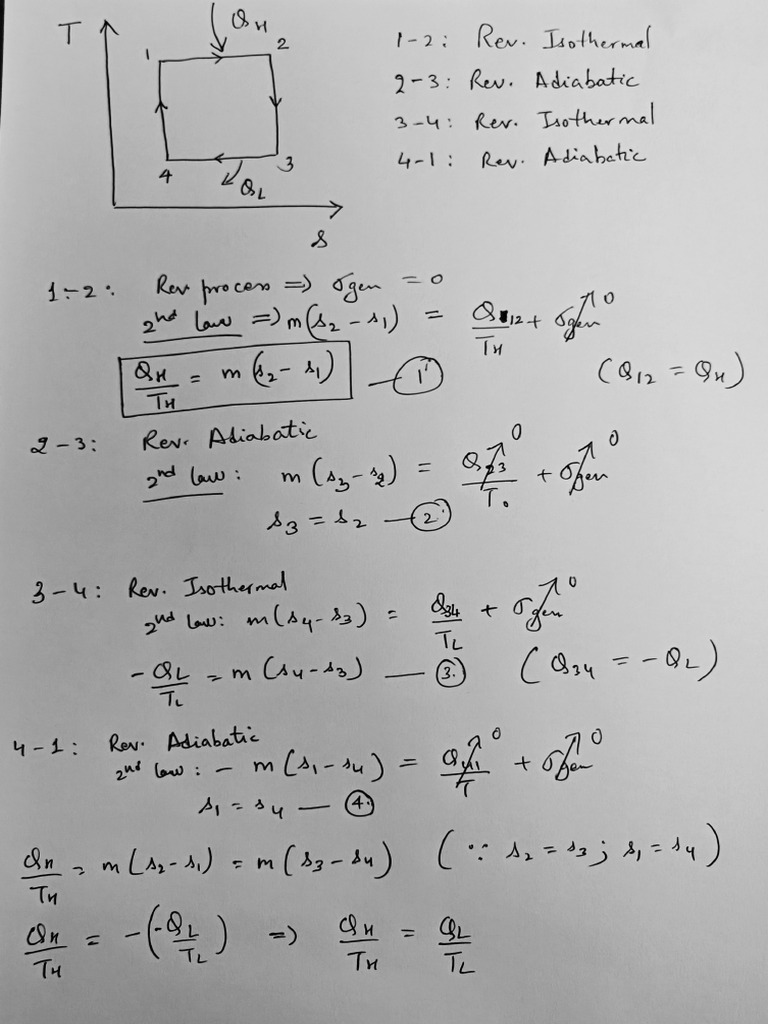 T
Q_H
1
2
4
3
Q_L
s
1-2: Rev. Isothermal
2-3: Rev. Adiabatic
3-4: Rev. Isothermal
4-1: Rev. Adiabatic
1-2: Rev process => σgen = 0
2nd law => m(s₂ - s₁) = Q₁₂/T_H + σgen↗0
Q_H/T_H = m(s₂ - s₁) — ① (Q₁₂ = Q_H)
2-3: Rev. Adiabatic
2nd law: m(s₃ - s₂) = Q₂₃↗0/T₀ + σgen↗0
s₃ = s₂ — ②
3-4: Rev. Isothermal
2nd law: m(s₄ - s₃) = Q₃₄/T_L + σgen↗0
-Q_L/T_L = m(s₄ - s₃) — ③. (Q₃₄ = -Q_L)
4-1: Rev. Adiabatic
2nd law: - m(s₁ - s₄) = Q₄₁↗0/T + σgen↗0
s₁ = s₄ — ④.
Q_H/T_H = m(s₂ - s₁) = m(s₃ - s₄) (∵ s₂ = s₃; s₁ = s₄)
Q_H/T_H = -(-Q_L/T_L) => Q_H/T_H = Q_L/T_L